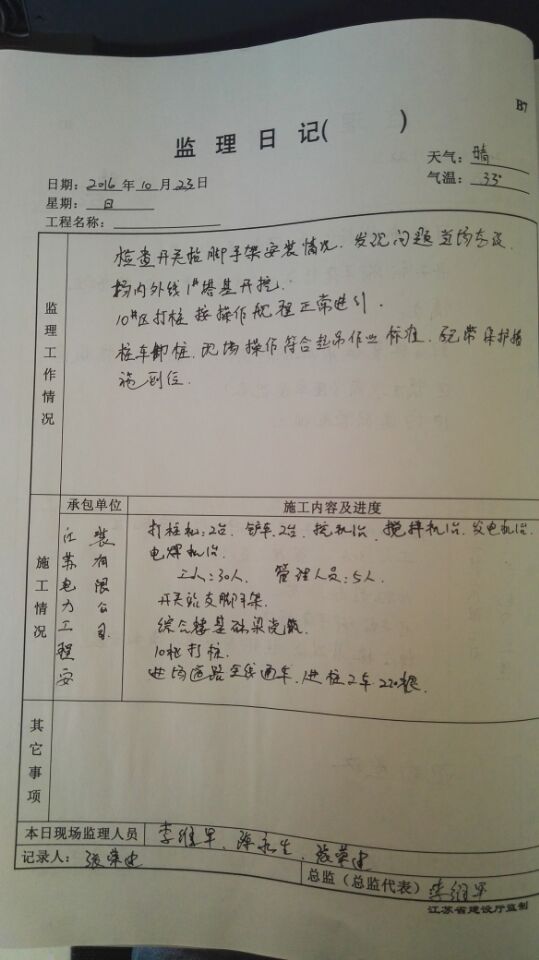 B7
监理日记(          )
日期：2016年10月23日
天气：晴
星期：日
气温：33°
工程名称：
监理工作情况
检查开关站脚手架安装情况．发现问题当场
场内外线1#塔基开挖．
10#区打桩 按操作规程正常进行．
桩车卸桩．现场操作符合起吊作业标准．保护措
施到位．
承包单位
施工内容及进度
施工情况
江苏电力工程安
装有限公司
打桩机：2台．铲车2台．挖机1台．搅拌机1台．发电机1台
电焊机1台．
工人：30人．  管理人员：5人．
开关站支脚手架．
综合楼基础梁浇筑．
10#区打桩．
进场道路全线通车．进桩2车220根．
其它事项
本日现场监理人员
李继军、陈永生、张荣建
记录人：张荣建
总监（总监代表）李继军
江苏省建设厅监制